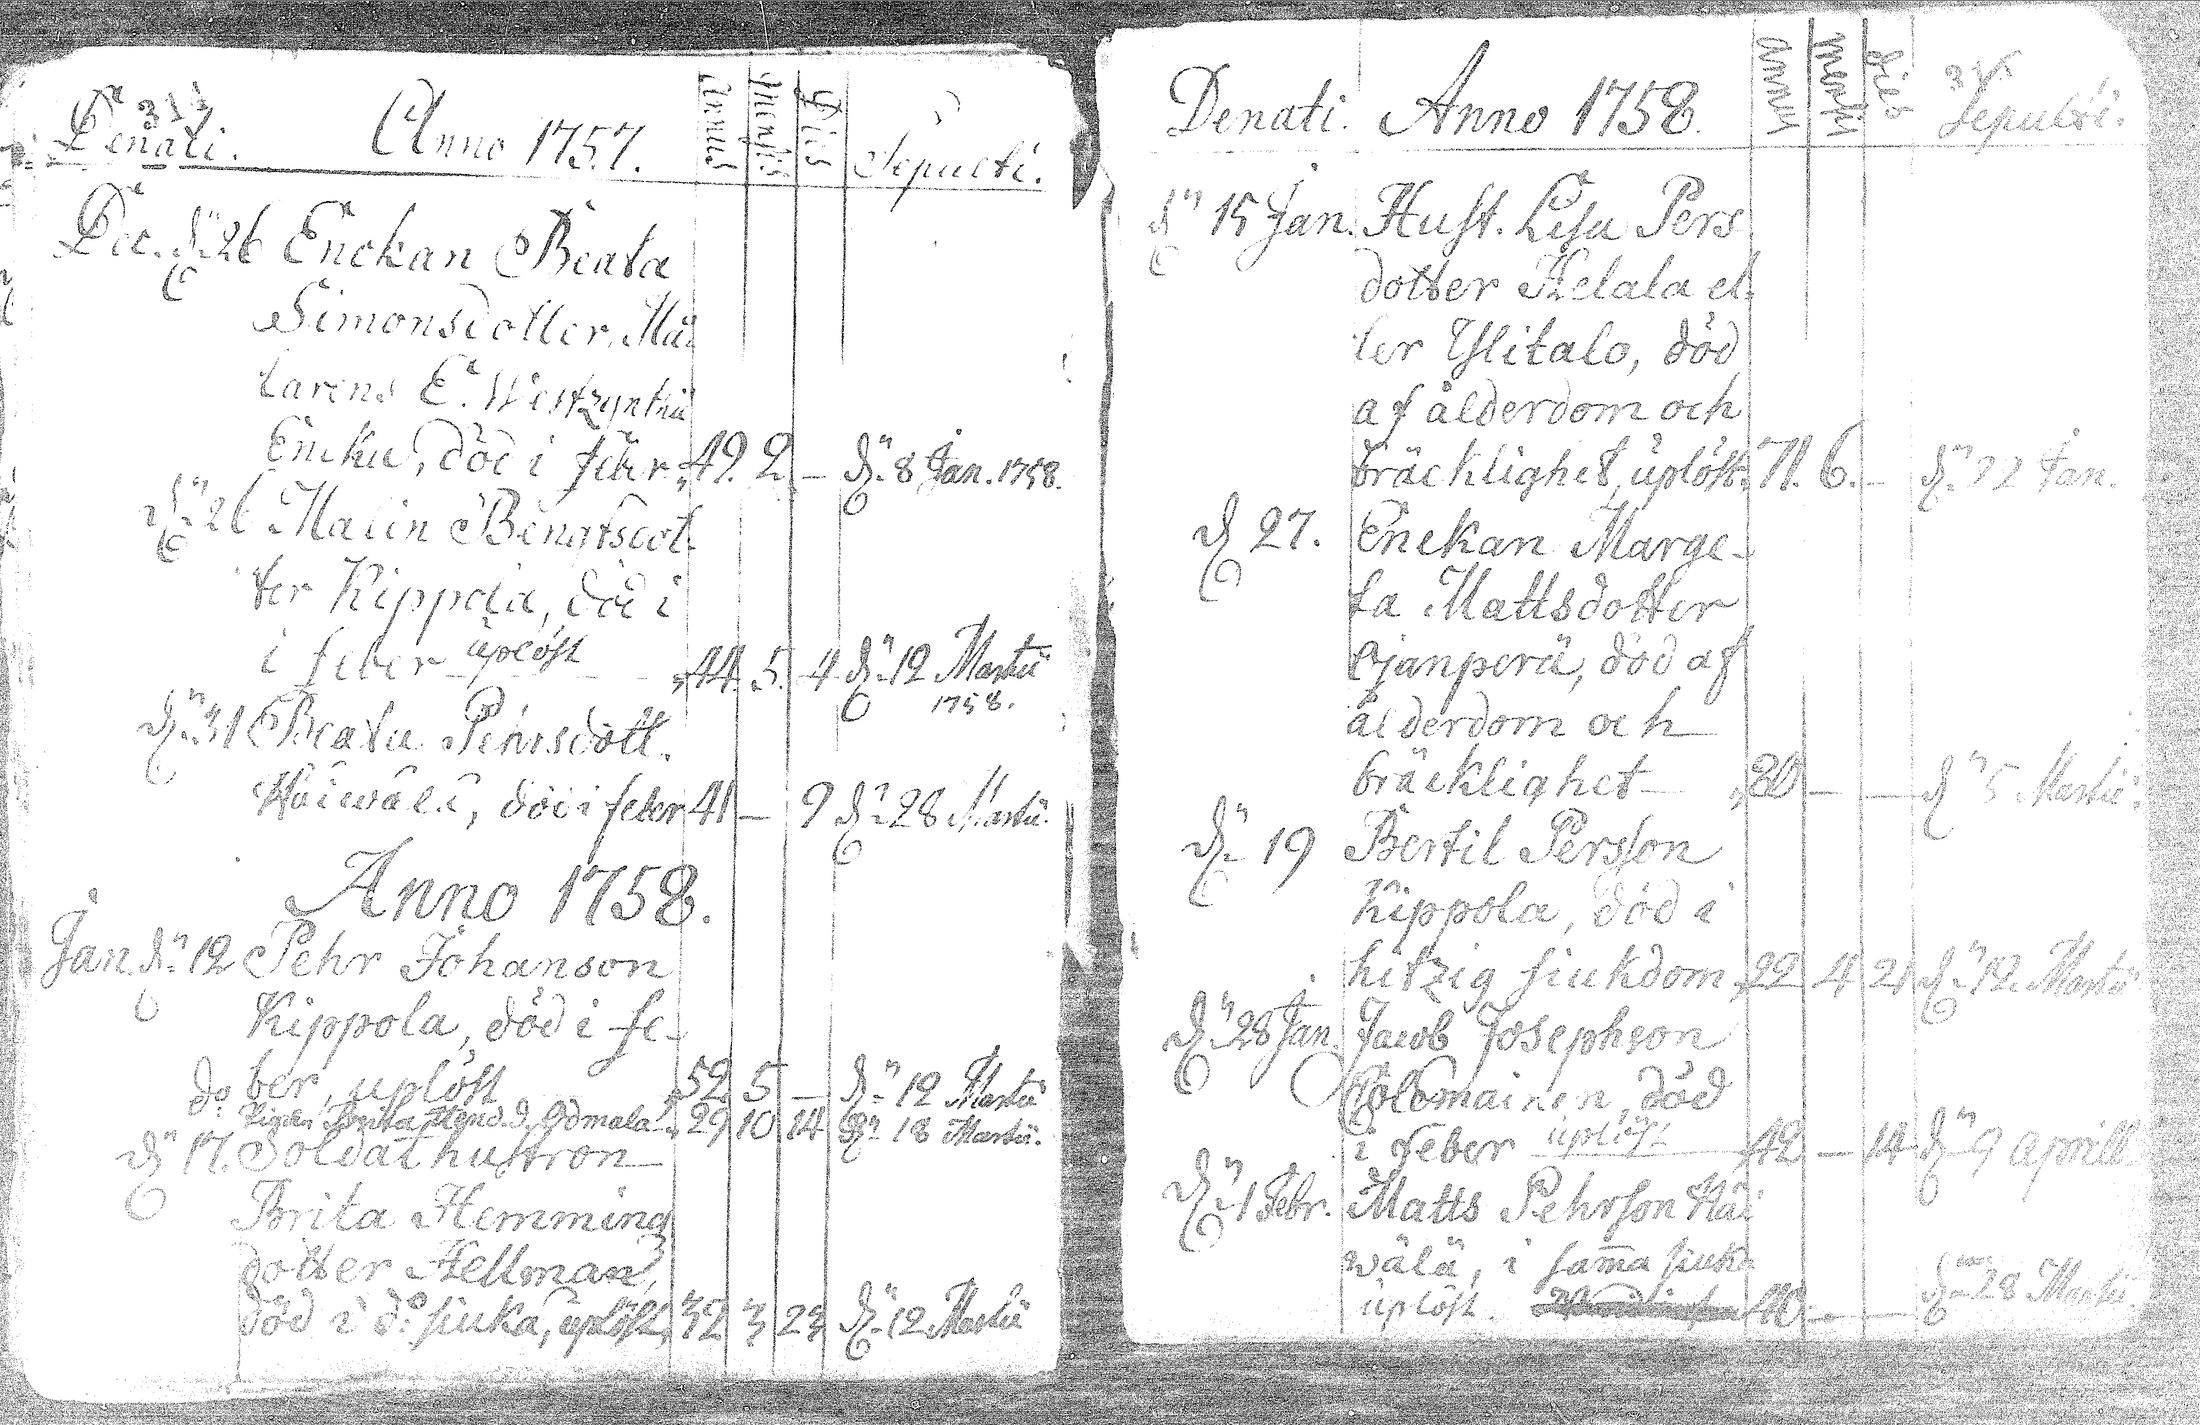 Denati. Anno 1757. Annus Mensis Dies Sepulti.
Dec. dn 26 Enckan Beata
Simonsdotter, Må-
larens E. Westzynthii
Encka, död i feber 49. 2. — dn 8 Jan. 1758.
dn 26 Malin Bengtsdot-
ter Kippola, död i
i feber uplöst 44. 5. 4 dn 12 Martii
1758.
dn 31 Beata Pehrsdott.
Häiwälä, död i feber 41 — 9 dn 28 Martii.
Anno 1758.
Jan. dn 12 Pehr Johanson
Kippola, död i fe-
ber, uplöst 52 5 — dn 12 Martii
do Pigan Brita Hend. d. 29 10 14 dn 18 Martii.
dn 17. Soldathustron
Brita Hemming
dotter Hellman,
död i do siuka, uplöst, 32 3 23 dn 12 Martii
Denati. Anno 1758. annus mensis dies Sepulti.
dn 15 Jan. Hust. Lisa Pers
dotter Helala el-
ler Ylitalo, död
af ålderdom och
bräcklighet, uplöst. 71. 6. — dn 22 Jan.
d 27. Enckan Marge-
ta Mattsdotter
Ojanperä, död af
ålderdom och
bräcklighet — 80 — — dn 5 Martii.
dn 19 Bertil Persson
Kippola, död i
hitzig siukdom 22 4 21 dn 12. Martii
dn 28 Jan. Jacob Josephson
död
i feber uplöst 42 — 14 dn 9 aprill
dn 1 Febr. Matts Pehrson Häi
wälä, i samma siuka
uplöst. 40 — — dn 28 Martii.